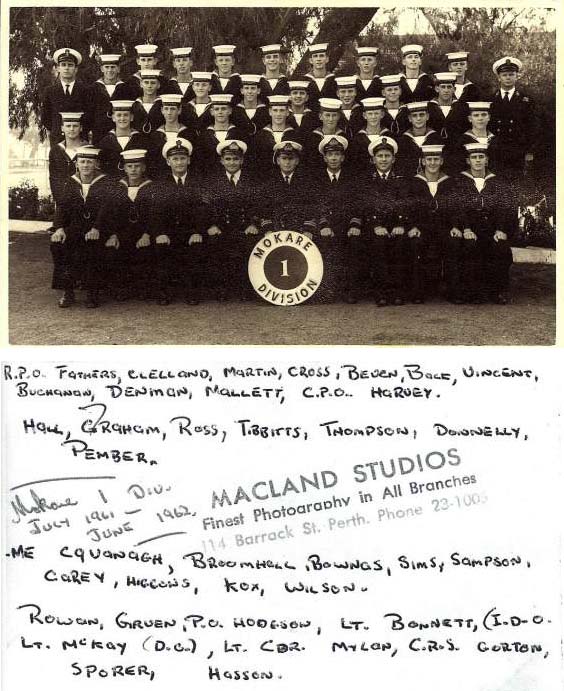 MOKARE
1
DIVISION
R.P.O. FATHERS, CLELLAND, MARTIN, CROSS, BEVEN, BALL, VINCENT,
BUCHANAN, DENMAN, MALLETT, C.P.O. HARVEY.
HALL, GRAHAM, ROSS, TIBBITTS, THOMPSON, DONNELLY,
PEMBER.
MACLAND STUDIOS
Finest Photography in All Branches
114 Barrack St. Perth. Phone 23-1005
Mokare 1 DIV.
JULY 1961 -
JUNE 1962
-ME CAVANAGH, BROOMHALL, BOWNAS, SIMS, SAMPSON,
CAREY, HIGGONS, KOX, WILSON.
ROWAN, GRUEN, P.O. HODGSON, LT. BONNETT, (I.D.O.
LT. MCKAY (D.O.), LT. CDR. MYLON, C.R.S. GORTON,
SPORER, HASSON.